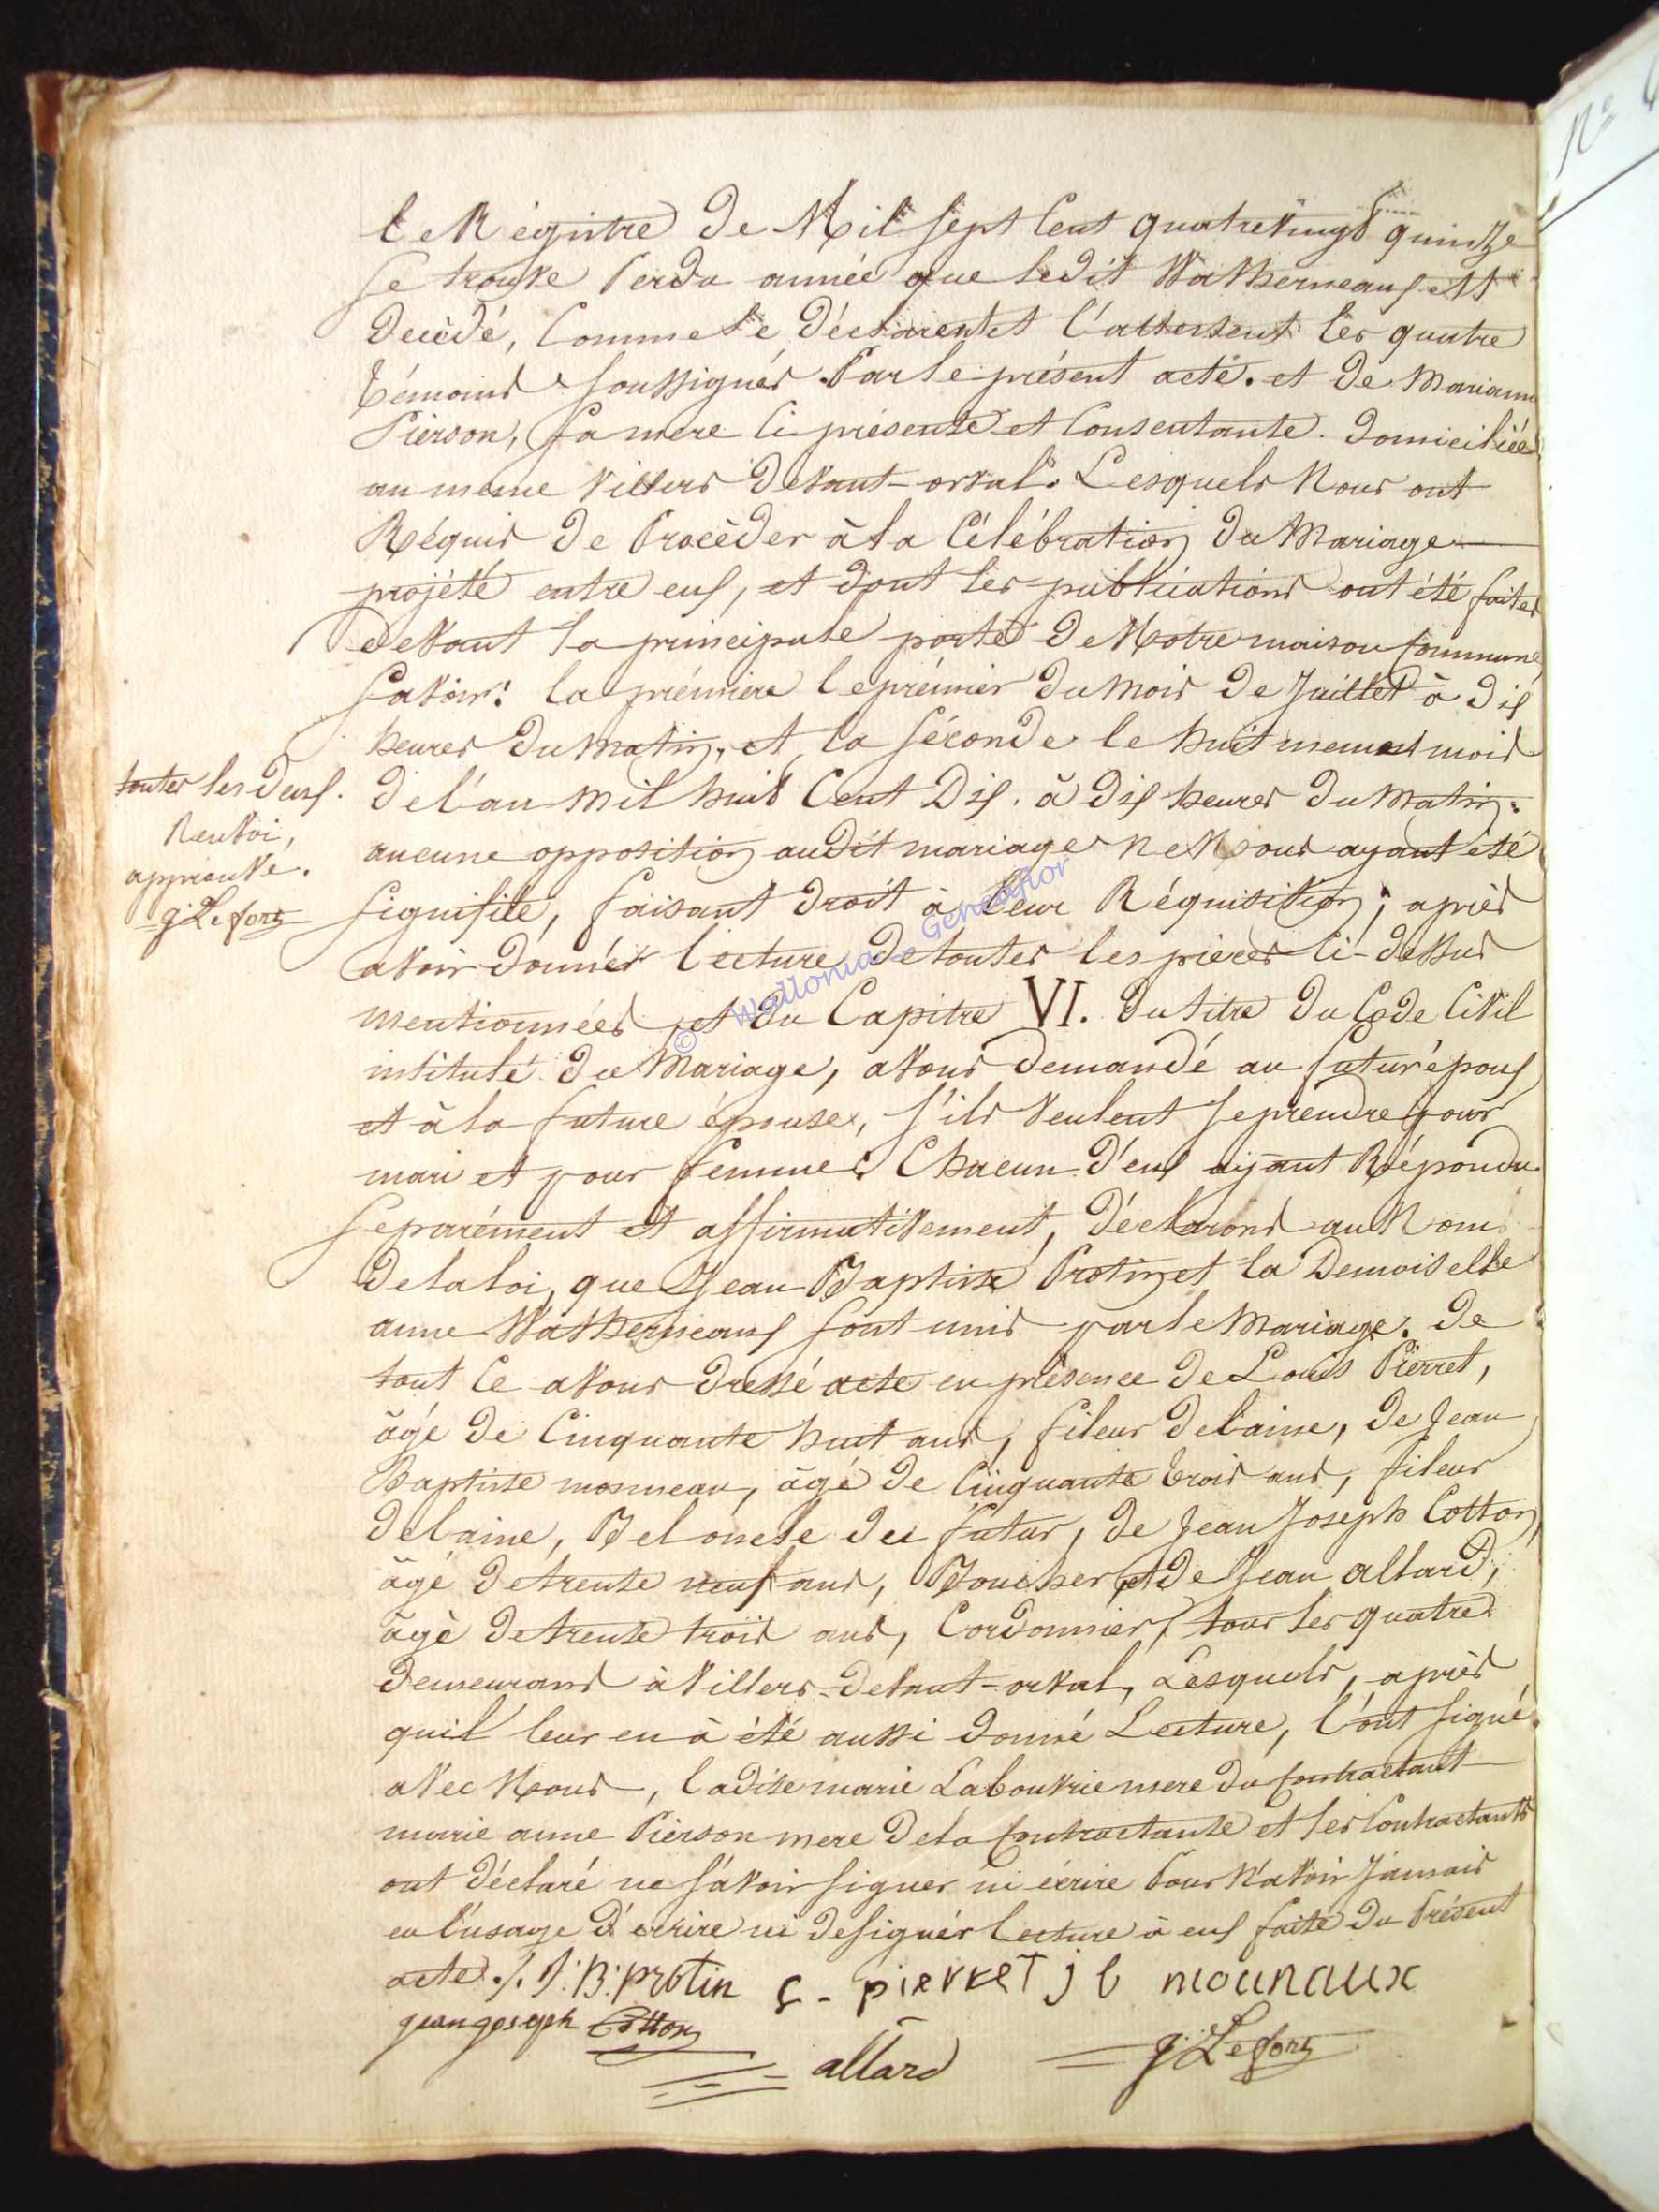 le Régistre de Mil sept Cent quatrevingt quinze
se trouve Perdu année que ledit Watherneaux est
décédé, Comme le déclarent et l'attestent les quatre
témoins soussignés Par le présent acte. et de Mariann
Pierson, sa mere ci présente et Consentante. domiciliée
au meme Villers devant-orval. Lesquels Nous ont
Réquis de Procèder à la Célébration du Mariage
projété entre eux, et dont les publications ont été faites
devant la principale porte de Notre maison Commune,
Savoir: la prémiere le prémier du mois de Juillet à dix
heures du matin, et la séconde le huit meme mois
de l'an mil huit Cent Dix. à dix heures du matin.
toutes les deux.
Renvoi,
approuvé.
g: Lefort
aucune opposition audit mariage ne Nous ayant été
signifiée, faisant droit à leur Réquisition; après
avoir donnér lecture de toutes les pieces ci-dessus
mentionnées et du Capitre VI. du titre du Code Civil
intitulé du Mariage, avons demandé au futur époux
et à la future épouse, s'ils veulent se prendre pour
mari et pour femme. Chacun d'eux aijant Répondu
separément et affirmativement, déclarons au Nom
de la loi, que Jean Baptiste Protin et la Demoiselle
anne Watherneaux sont unis par le Mariage. de
tout Ce avons dressé acte en présence de Louis Pierret,
âgé de Cinquante huit ans, fileur de laine, de Jean
Baptiste mosneau, âgé de Cinquante trois ans, fileur
de laine, Bel oncle du futur, de Jean Joseph Cotton,
âgé de trente neuf ans, Boucher, et de Jean allard,
âgé de trente trois ans, Cordonnier, tous les quatre
demeurans à Villers-devant-orval, Lesquels, après
quil leur en à été aussi donné Lecture, l'ont signé
avec Nous, ladite marie Labouvrie mere du Contractant
marie anne Pierson mere de la Contractante et les Contractants
ont déclaré ne sávoir signer ni écrire Pour N'avoir Jamais
eu l'usage d'ecrire ni de signér lecture à eux faite du Présent
acte ./. J: B: protin L - pierret j b mounaux
jean joseph Cotton
allard g: Lefort
© Wallonia - Geneaflor
N°